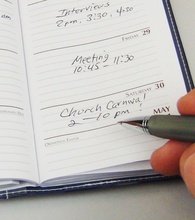 Interviews
2pm, 3:30, 4:30
FRIDAY 29
Meeting
10:45 - 11:30
SATURDAY 30
Church Carnival!
2 - 10 pm
MAY